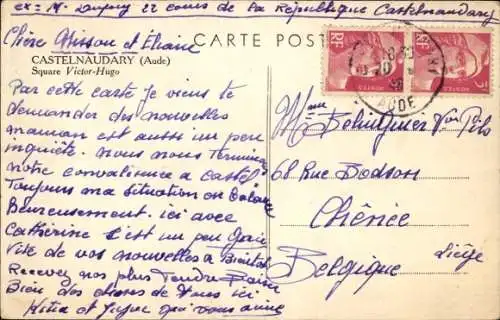 ex = M. Dupuy 22 cours de la République Castelnaudary
Chère et Éliane
CARTE POST
CASTELNAUDARY (Aude)
Square Victor-Hugo
RF
RF
POSTES
AUDE
Par cette carte je viens te
demander des nouvelles
maman est aussi un peu
inquiète. nous nous terminons
notre convalescence a Castel
Toujours ma situation en
Heureusement. ici avec
Catherine c'est un peu gaie
Vite de vos nouvelles a Bientot
Recevez nos plus Tendre Baiser
Bien des choses de Tous ici
et qui vous aime
Mme
68 Rue Bodson
Chênée
Liège
Belgique